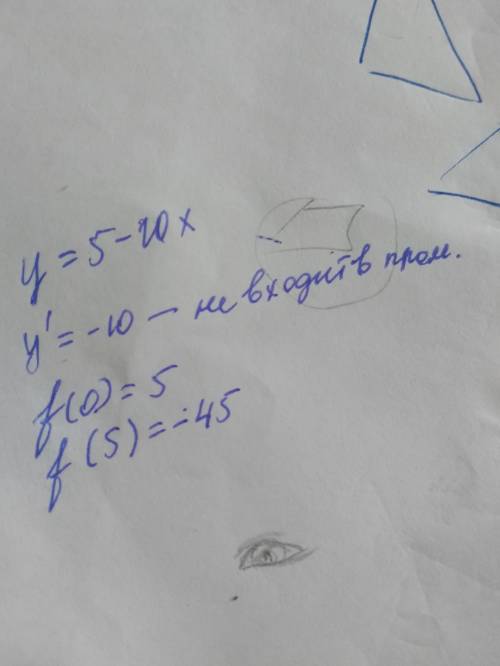 y = 5 - 10x
y' = -10 — не входит в пром.
f(0) = 5
f(5) = -45